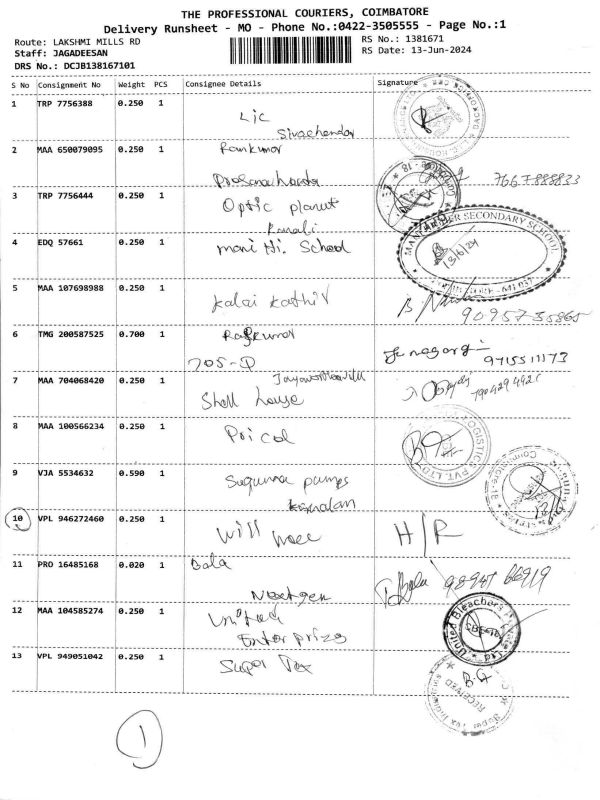 THE PROFESSIONAL COURIERS, COIMBATORE
Delivery Runsheet - MO - Phone No.:0422-3505555 - Page No.:1
Route: LAKSHMI MILLS RD
RS No.: 1381671
Staff: JAGADEESAN
RS Date: 13-Jun-2024
DRS No.: DCJB138167101
S No Consignment No Weight PCS Consignee Details Signature
1 TRP 7756388 0.250 1
Lic
Sivachandar
2 MAA 650079095 0.250 1 Ramkumar
7667888833
3 TRP 7756444 0.250 1
Optic planut
4 EDQ 57661 0.250 1 mani Hi. School
MANI HIGHER SECONDARY SCHOOL
13/6/24
5 MAA 107698988 0.250 1
Kalai Kathir
6 TMG 200587525 0.700 1 Rajkumar
705-D
9715511173
7 MAA 704068420 0.250 1
Shell house
8 MAA 100566234 0.250 1
Pricol
LOGISTICS PVT. LTD
9 VJA 5534632 0.590 1
Suguna pumps
10 VPL 946272460 0.250 1
will
H/R
11 PRO 16485168 0.020 1 Bala
Nextgen
12 MAA 104585274 0.250 1 United
Enterprizs
United Bleachers
13 VPL 949051042 0.250 1 Super Tex
RECEIVED
1